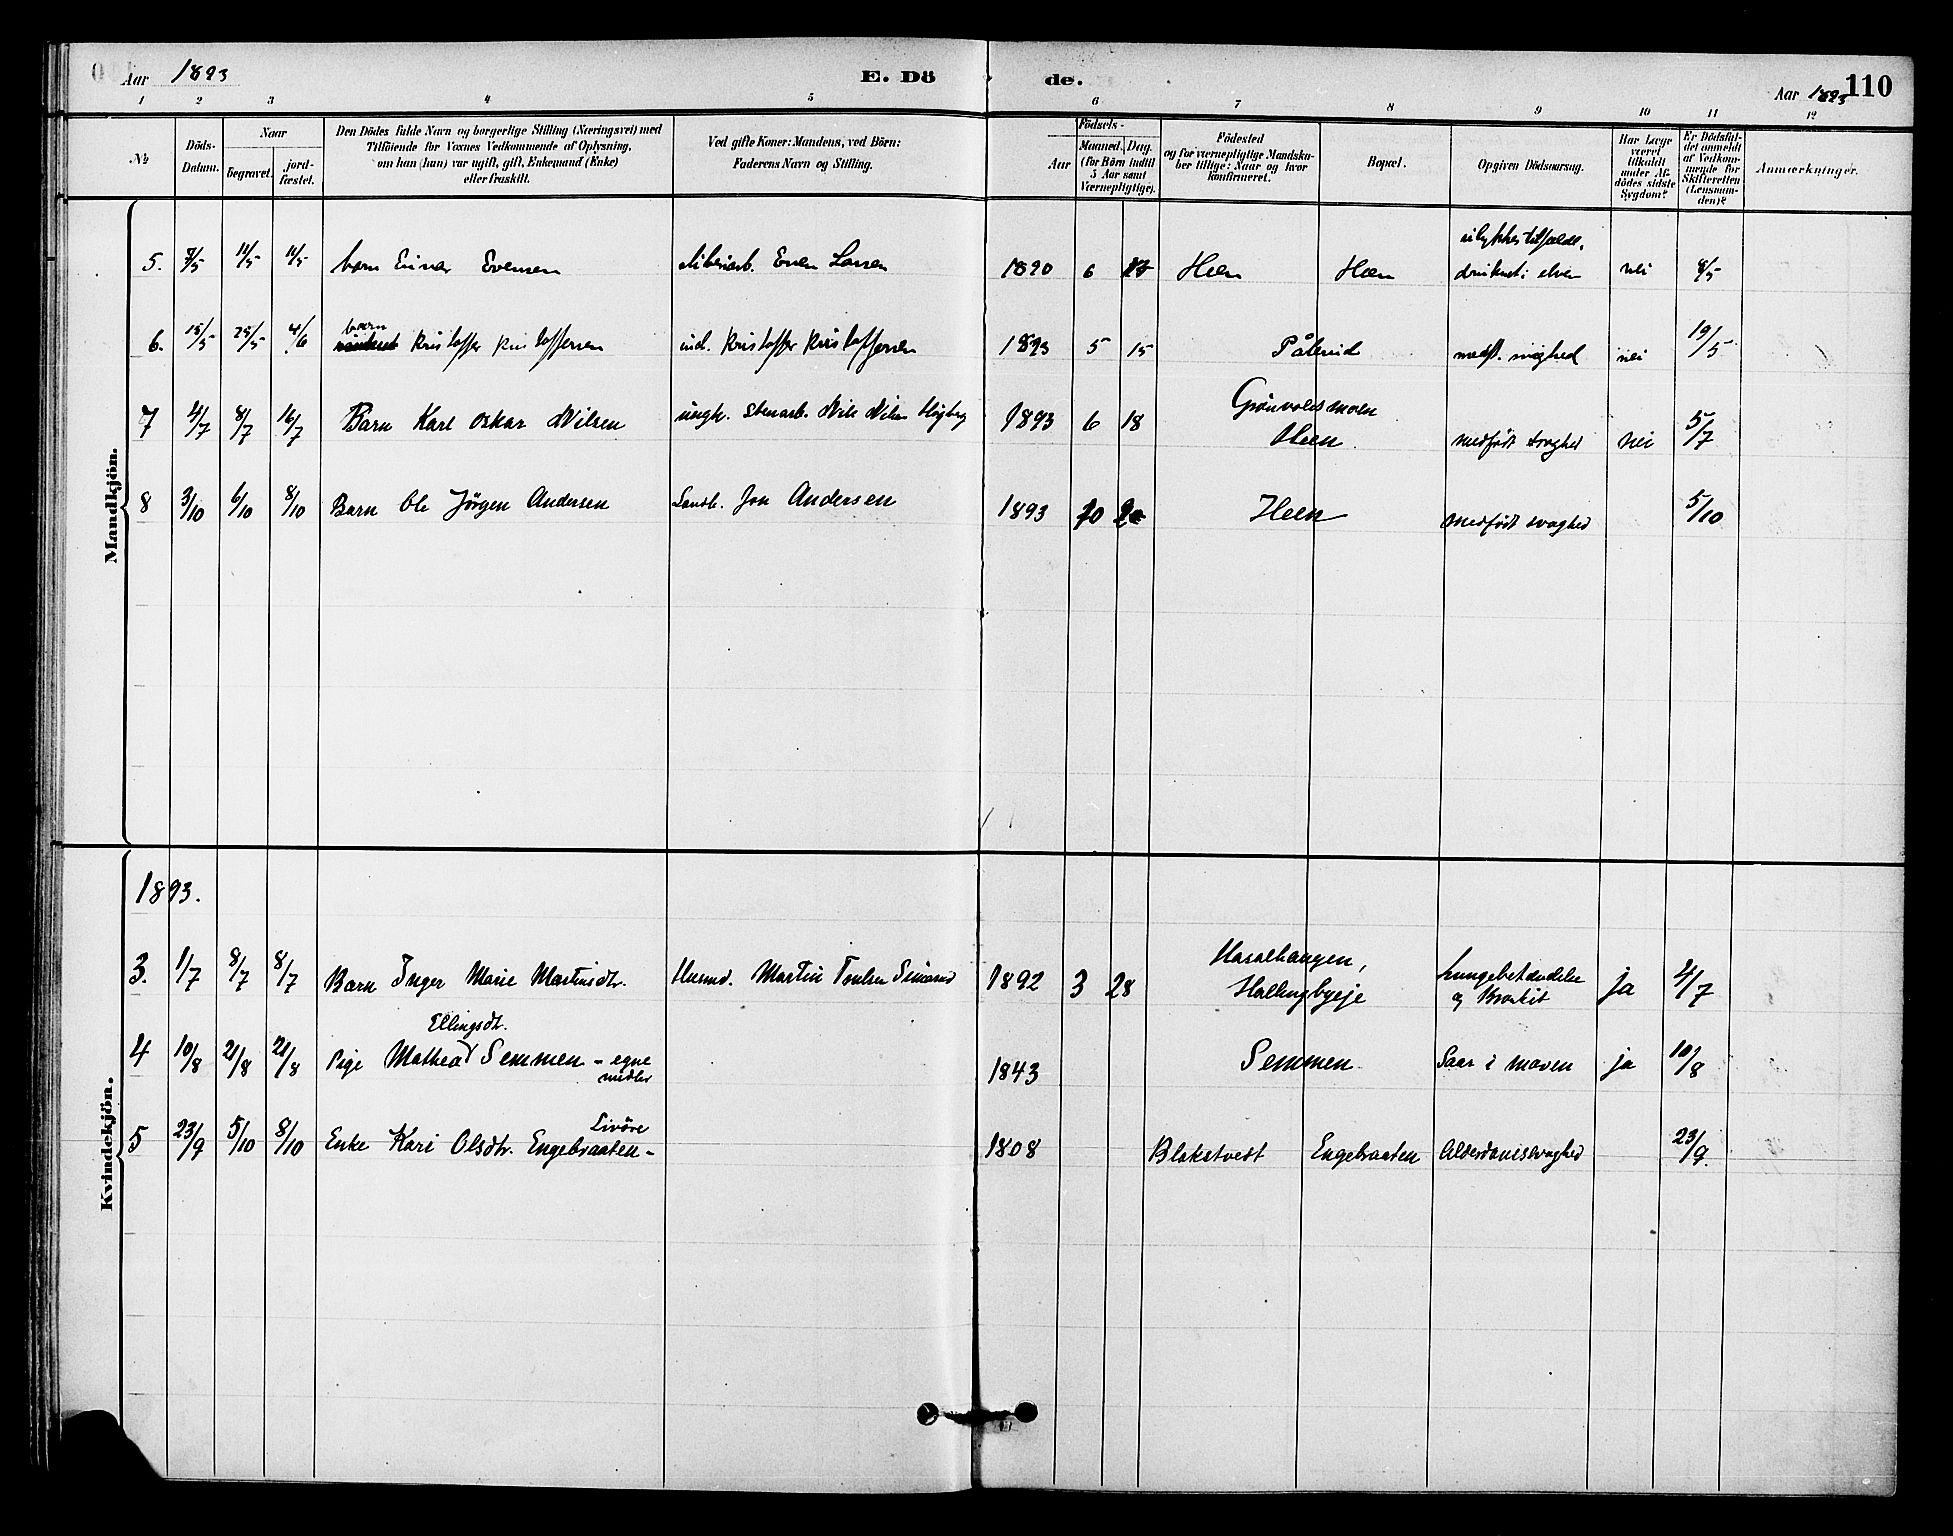 Aar 1893
E. Dö
de.
Aar 1893
110
1 2 3 4 5 6 7 8 9 10 11 12
No
Döds-
Datum.
Naar
begravet.
jord-
fæstet.
Den Dödes fulde Navn og borgerlige Stilling (Næringsvei) med
Tilföiende for Voxnes Vedkommende af Oplysning,
om han (hun) var ugift, gift, Enkemand (Enke)
eller fraskilt.
Ved gifte Koner: Mandens, ved Börn:
Faderens Navn og Stilling.
Födsels-
Aar
Maaned. Dag.
(for Börn indtil
5 Aar samt
Værnepligtige).
Födested
og for værnepligtige Mandska-
ber tillige: Naar og hvor
konfirmeret.
Bopæl.
Opgiven Dödsaarsag.
Har Læge
været
tilkaldt
under Af-
dödes sidste
Sygdom?
Er Dödsfal-
det anmeldt
af Vedkom-
mende for
Skifteretten
(Lensman-
den)?
Anmærkninger.
Mandkjön.
ulykkestilfælde,
5. 7/5 11/5 11/5 barn Einar Evensen Even Larsen 1890 6 Hen Hen druknet i elven nei 8/5
barn
6. 15/5 25/5 4/6 Kristoffer Kristoffersen ind. Kristoffer Kristoffersen 1893 5 15 Pålerud medf. svaghed nei 19/5
Grönvoldsmoen
7 4/7 8/7 16/7 Barn Karl Oskar Nilsen ungk. Stenarb. Nils Nilsen Högberg 1893 6 18 Heen. medfödt svaghed nei 5/7
8 3/10 6/10 8/10 Barn Ole Jörgen Andersen Landh. Jon Andersen 1893 10 Heen medfödt svaghed 5/10
Kvindekjön.
1893.
Hasalhaugen,
3. 1/7 8/7 8/7 Barn Inger Marie Martinsdtr. Husmd. Martin 1892 3 28 Hallingbyeje Lungebetændelse
og Bronkit ja 4/7
Ellingsdtr.
4 10/8 21/8 21/8 Pige Mathea Semmen - egne
midler 1843 Semmen Saar i maven ja 10/8
Livöre
5 23/9 5/10 8/10 Enke Kari Olsdtr. Engebraaten - 1808 Blakstvedt Engebraaten Alderdomssvaghed 23/9.